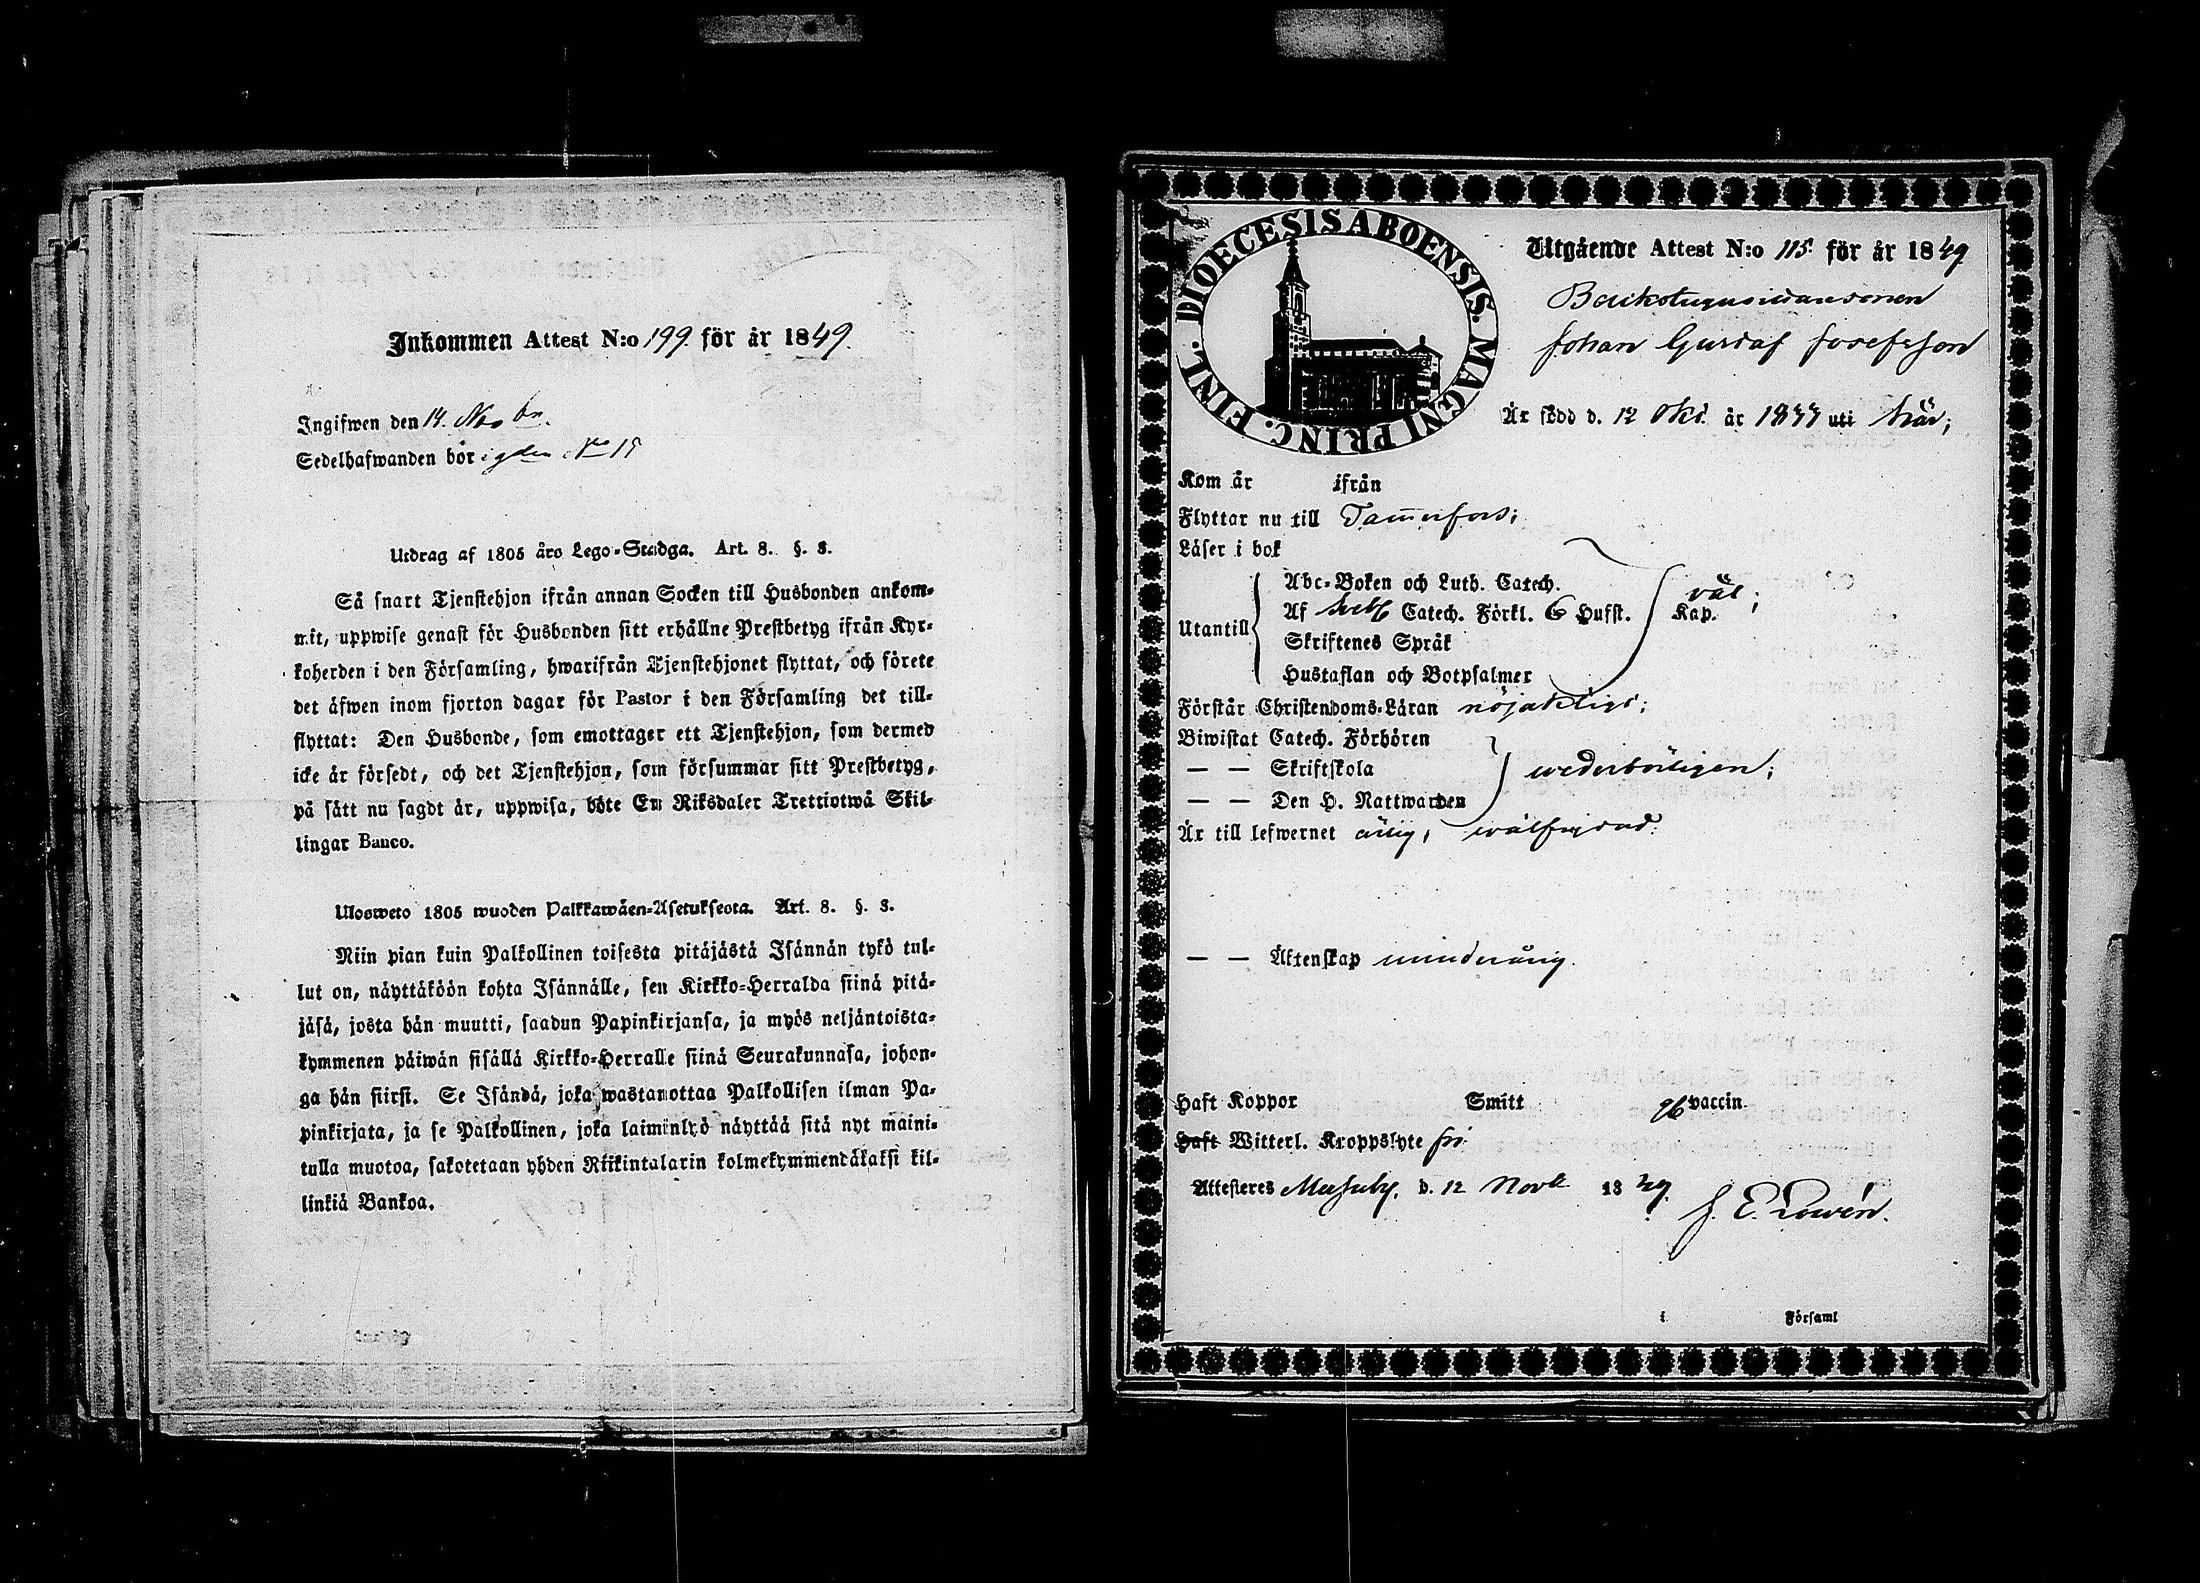 Inkommen Attest N:o 199 för år 1849.
Ingifwen den 14. Nov br.
Sedelhafwanden bor i gden No 15
Utdrag af 1805 års Lego-Stadga. Art. 8. §. 8.
Så snart Tjenstehjon ifrån annan Socken till Husbonden ankom-
mit, uppwise genast för Husbonden sitt erhållne Prestbetyg ifrån Kyr-
koherden i den Församling, hwarifrån Tjenstehjonet flyttat, och förete
det äfwen inom fjorton dagar för Pastor i den Församling det till-
flyttat: Den Husbonde, som emottager ett Tjenstehjon, som dermed
icke är försedt, och det Tjenstehjon, som försummar sitt Prestbetyg,
på sätt nu sagdt är, uppwisa, böte En Riksdaler Trettiotwå Skil-
lingar Banco.
Ulosweto 1805 wuoden Palkkawäen-Asetuksesta. Art. 8. §. 8.
Niin pian kuin Palkollinen toisesta pitäjästä Isännän tykö tul-
lut on, näyttäköön kohta Isännälle, sen Kirkko-Herralda siinä pitä-
jäsä, josta hän muutti, saadun Papinkirjansa, ja myös neljäntoista-
kymmenen päiwän sisällä Kirkko-Herralle siinä Seurakunnasa, johon-
ga hän siirsi. Se Isändä, joka wastanottaa Palkollisen ilman Pa-
pinkirjata, ja se Palkollinen, joka laiminlyö näyttää sitä nyt maini-
tulla muotoa, sakotetaan yhden Riikintalarin kolmekymmendäkaksi kil-
linkiä Bankoa.
DIOECESIS ABOENSIS. MAGNI PRINC. FINL.
Utgående Attest N:o 115 för år 1849
Johan Gustaf Josefsson
Är född d. 12 Okt. år 1833 uti här;
Kom år ifrån
Flyttar nu till Tammerfors;
Läser i bok
Utantill
Abc-Boken och Luth. Catech.
Af Catech. Förkl. 6 Hufst. Kap. väl;
Skriftenes Språk
Hustaflan och Botpsalmer
Förstår Christendoms-Läran nöjaktligt;
Biwistat Catech. Förhören
— — Skriftskola wederbörligen;
— — Den H. Nattwarden
Är till lefwernet ärlig, wälfrejdad.
— — Äktenskap minderårig.
Haft Koppor Smitt vaccin.
Haft Witterl. Kroppslyte fri
Attesteres Messuby, d. 12 Novb 1849.
J. E. Rowén.
i Församl